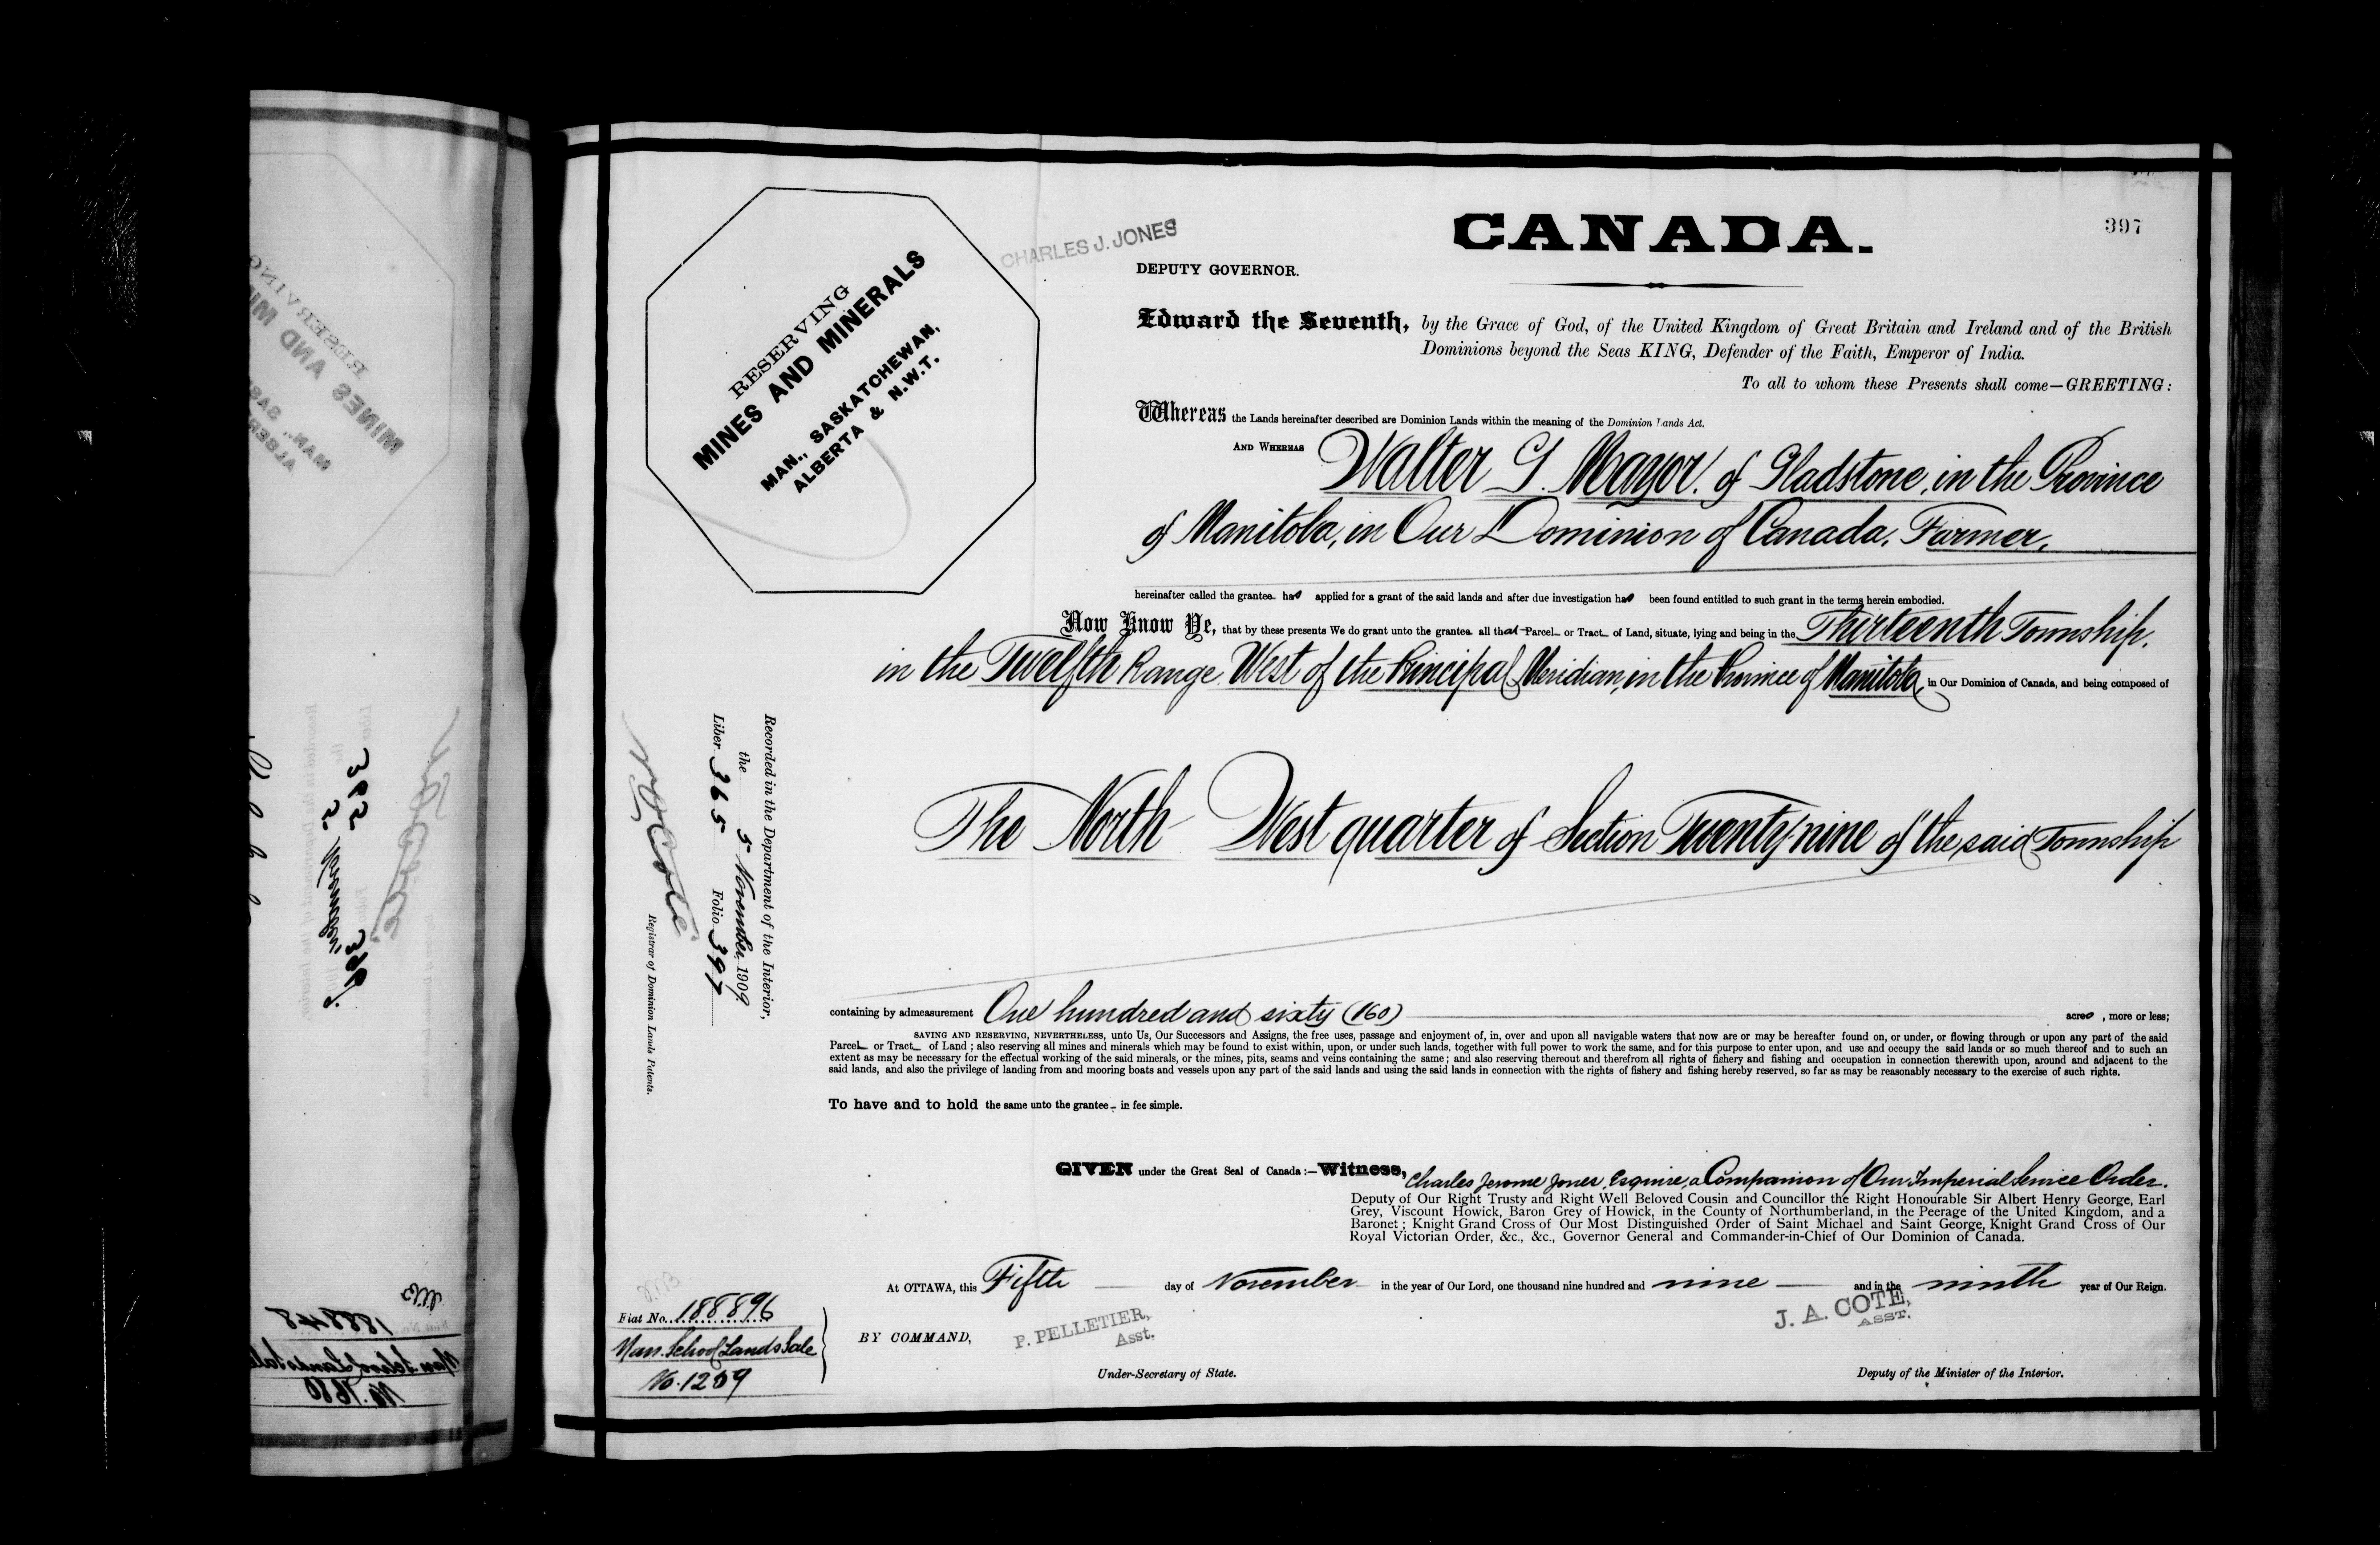 397
CANADA.
CHARLES J. JONES
DEPUTY GOVERNOR.
RESERVING
MINES AND MINERALS
MAN., SASKATCHEWAN,
ALBERTA & N.W.T.
Edward the Seventh, by the Grace of God, of the United Kingdom of Great Britain and Ireland and of the British
Dominions beyond the Seas KING, Defender of the Faith, Emperor of India.
To all to whom these Presents shall come—GREETING:
Whereas the Lands hereinafter described are Dominion Lands within the meaning of the Dominion Lands Act.
AND WHEREAS Walter G. Mayor, of Gladstone, in the Province
of Manitoba, in Our Dominion of Canada, Farmer,
hereinafter called the grantee has applied for a grant of the said lands and after due investigation has been found entitled to such grant in the terms herein embodied.
Now Know Ye, that by these presents We do grant unto the grantee all that Parcel or Tract of Land, situate, lying and being in the Thirteenth Township,
in the Twelfth Range West of the Principal Meridian, in the Province of Manitoba, in Our Dominion of Canada, and being composed of
The North West quarter of Section Twenty-nine of the said Township
Recorded in the Department of the Interior,
the 5 November, 1909
Liber 365 Folio 397
N.O. Coté
Registrar of Dominion Lands Patents.
containing by admeasurement One hundred and sixty (160) acres, more or less;
SAVING AND RESERVING, NEVERTHELESS, unto Us, Our Successors and Assigns, the free uses, passage and enjoyment of, in, over and upon all navigable waters that now are or may be hereafter found on, or under, or flowing through or upon any part of the said
Parcel or Tract of Land; also reserving all mines and minerals which may be found to exist within, upon, or under such lands, together with full power to work the same, and for this purpose to enter upon, and use and occupy the said lands or so much thereof and to such an
extent as may be necessary for the effectual working of the said minerals, or the mines, pits, seams and veins containing the same; and also reserving thereout and therefrom all rights of fishery and fishing and occupation in connection therewith upon, around and adjacent to the
said lands, and also the privilege of landing from and mooring boats and vessels upon any part of the said lands and using the said lands in connection with the rights of fishery and fishing hereby reserved, so far as may be reasonably necessary to the exercise of such rights.
To have and to hold the same unto the grantee in fee simple.
GIVEN under the Great Seal of Canada:—Witness, Charles Jerome Jones, Esquire, a Companion of Our Imperial Service Order.
Deputy of Our Right Trusty and Right Well Beloved Cousin and Councillor the Right Honourable Sir Albert Henry George, Earl
Grey, Viscount Howick, Baron Grey of Howick, in the County of Northumberland, in the Peerage of the United Kingdom, and a
Baronet; Knight Grand Cross of Our Most Distinguished Order of Saint Michael and Saint George, Knight Grand Cross of Our
Royal Victorian Order, &c., &c., Governor General and Commander-in-Chief of Our Dominion of Canada.
At OTTAWA, this Fifth day of November in the year of Our Lord, one thousand nine hundred and nine and in the ninth year of Our Reign.
Fiat No. 188896
Man. School Lands Sale
No. 1259
BY COMMAND,
P. PELLETIER,
Asst.
Under-Secretary of State.
J. A. COTE,
ASST.
Deputy of the Minister of the Interior.